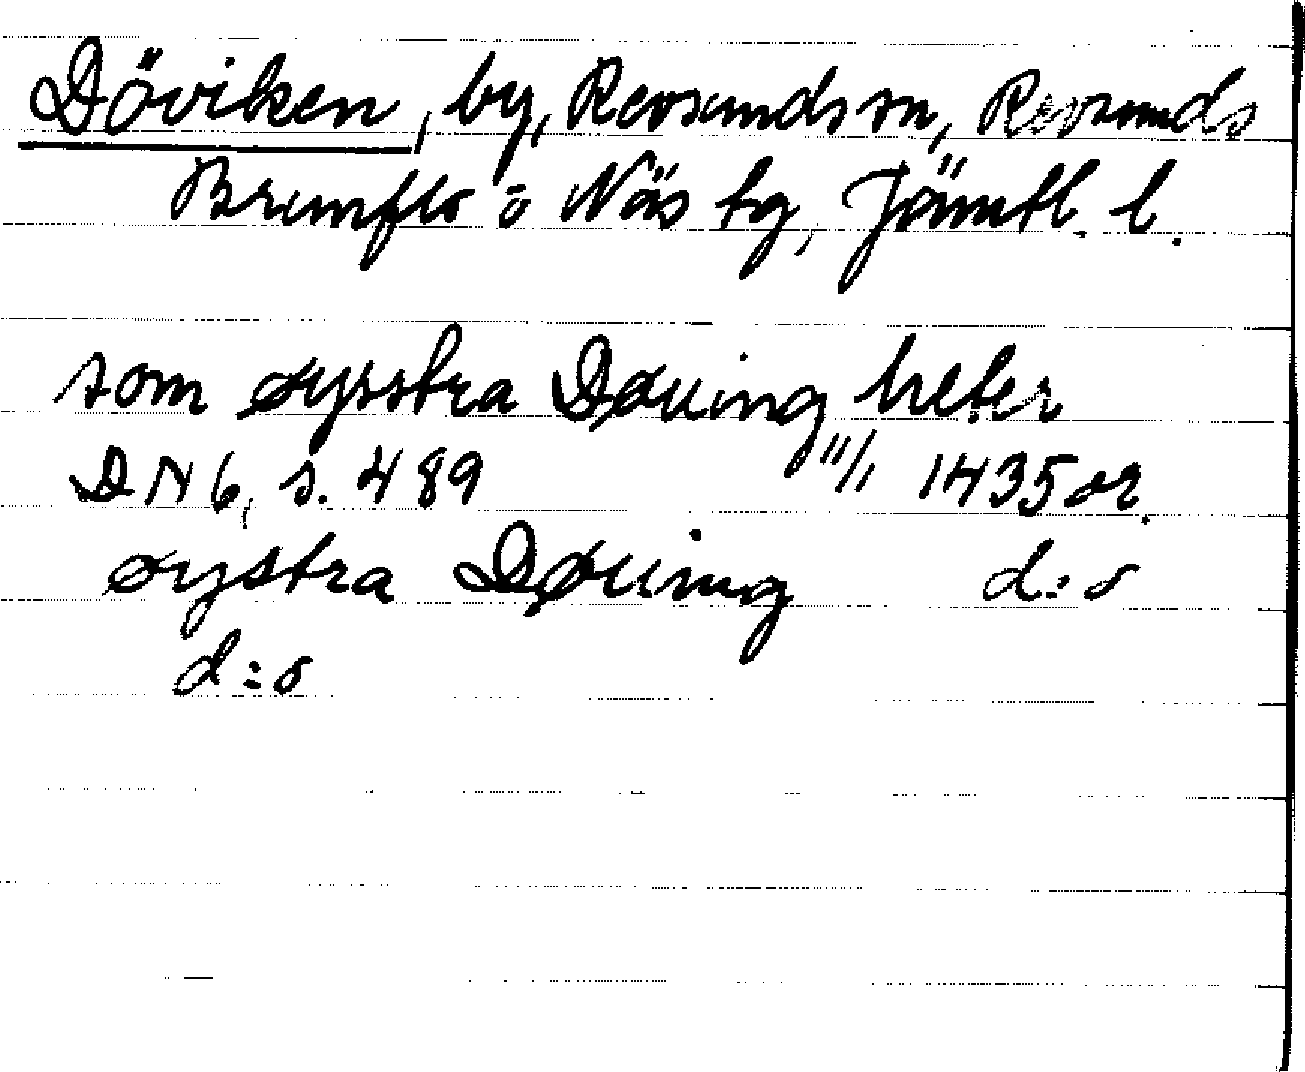 Döviken, by, Revsunds sn, Revsunds
Brunflo o Näs tg, Jämtl. l.
som øysstra Døuing heter
DN 6, s. 489 11/1 1435 or.
øystra Døuing d:o
d:o